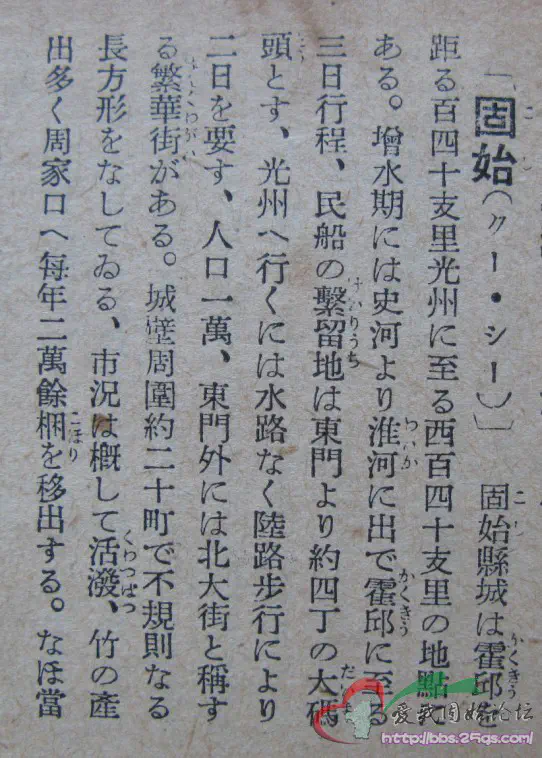 「固始(クー・シー)」 固始縣城は霍邱を
距る百四十支里光州に至る西百四十支里の地點に
ある。增水期には史河より淮河に出で霍邱に至る
三日行程、民船の繫留地は東門より約四丁の大碼
頭とす、光州へ行くには水路なく陸路步行により
二日を要す、人口一萬、東門外には北大街と稱す
る繁華街がある。城壁周圍約二十町で不規則なる
長方形をなしてゐる、市況は槪して活潑、竹の產
出多く周家口へ每年二萬餘梱を移出する。なほ當
爱我固始论坛
http://bbs.25qs.com/